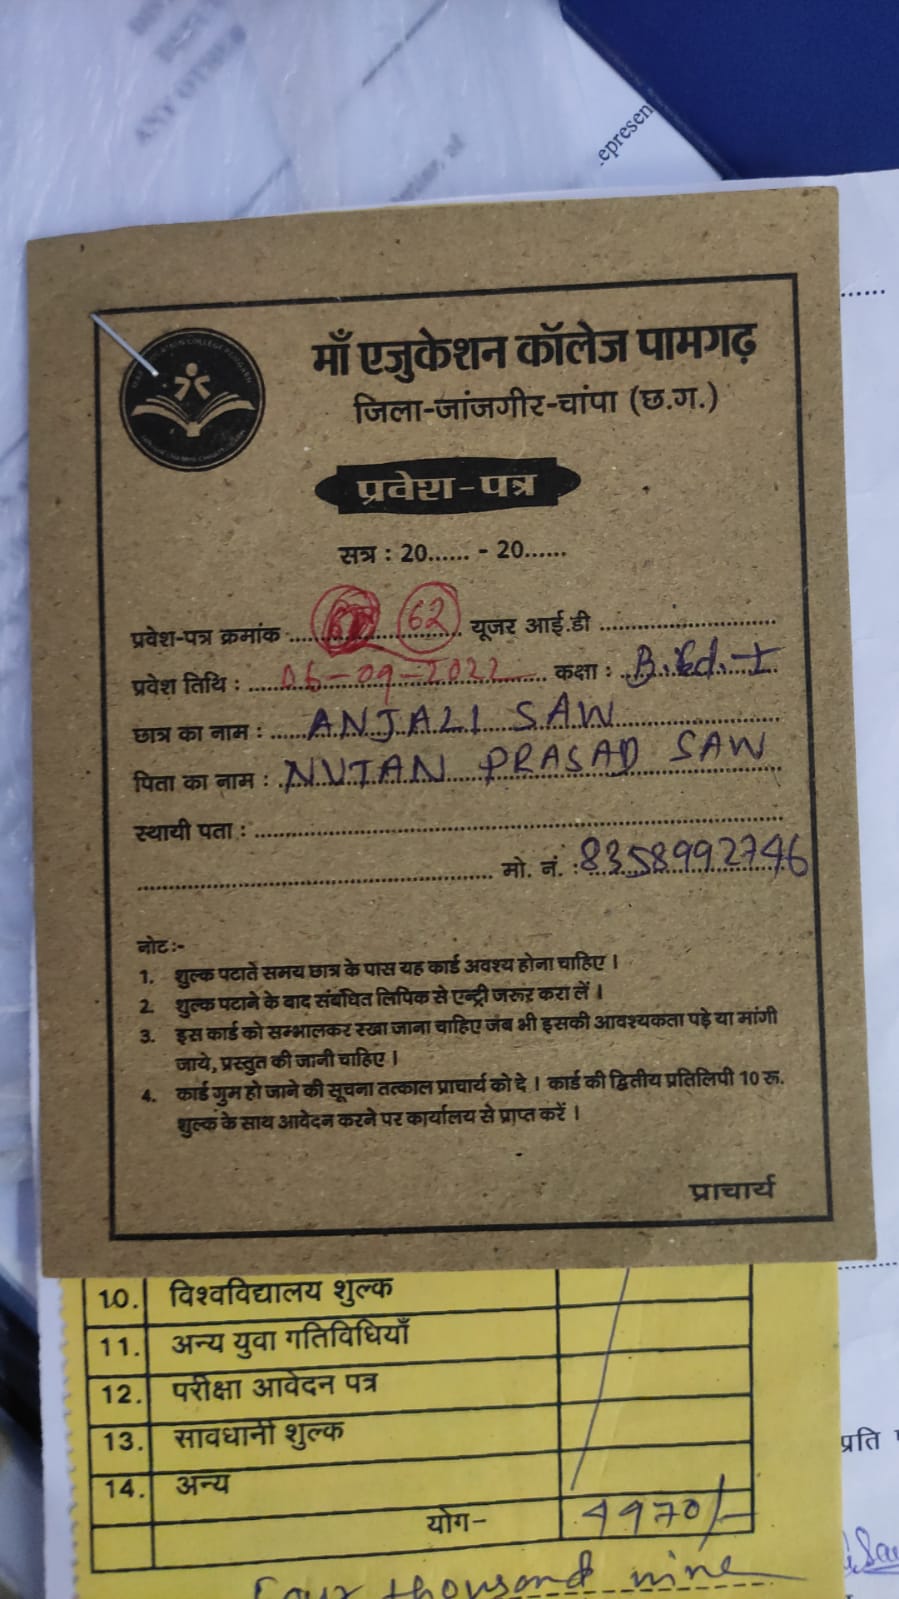 epresen
माँ एजुकेशन कॉलेज पामगढ़
जिला-जांजगीर-चांपा (छ.ग.)
प्रवेश-पत्र
सत्र : 20...... - 20......
प्रवेश-पत्र क्रमांक ........ 62 यूजर आई.डी ........
प्रवेश तिथि : 06-09-2022 कक्षा : B.Ed.-I
छात्र का नाम : ANJALI SAW
पिता का नाम : NUTAN PRASAD SAW
स्थायी पता : ........
........ मो. नं. : 8358992746
नोट :-
1. शुल्क पटाते समय छात्र के पास यह कार्ड अवश्य होना चाहिए ।
2. शुल्क पटाने के बाद संबंधित लिपिक से एन्ट्री जरूर करा लें ।
3. इस कार्ड को सम्भालकर रखा जाना चाहिए जब भी इसकी आवश्यकता पड़े या मांगी
जाये, प्रस्तुत की जानी चाहिए ।
4. कार्ड गुम हो जाने की सूचना तत्काल प्राचार्य को दे । कार्ड की द्वितीय प्रतिलिपी 10 रू.
शुल्क के साथ आवेदन करने पर कार्यालय से प्राप्त करें ।
प्राचार्य
10. विश्वविद्यालय शुल्क
11. अन्य युवा गतिविधियाँ
12. परीक्षा आवेदन पत्र
13. सावधानी शुल्क
14. अन्य
योग- 4970/-
Four thousand nine
प्रति